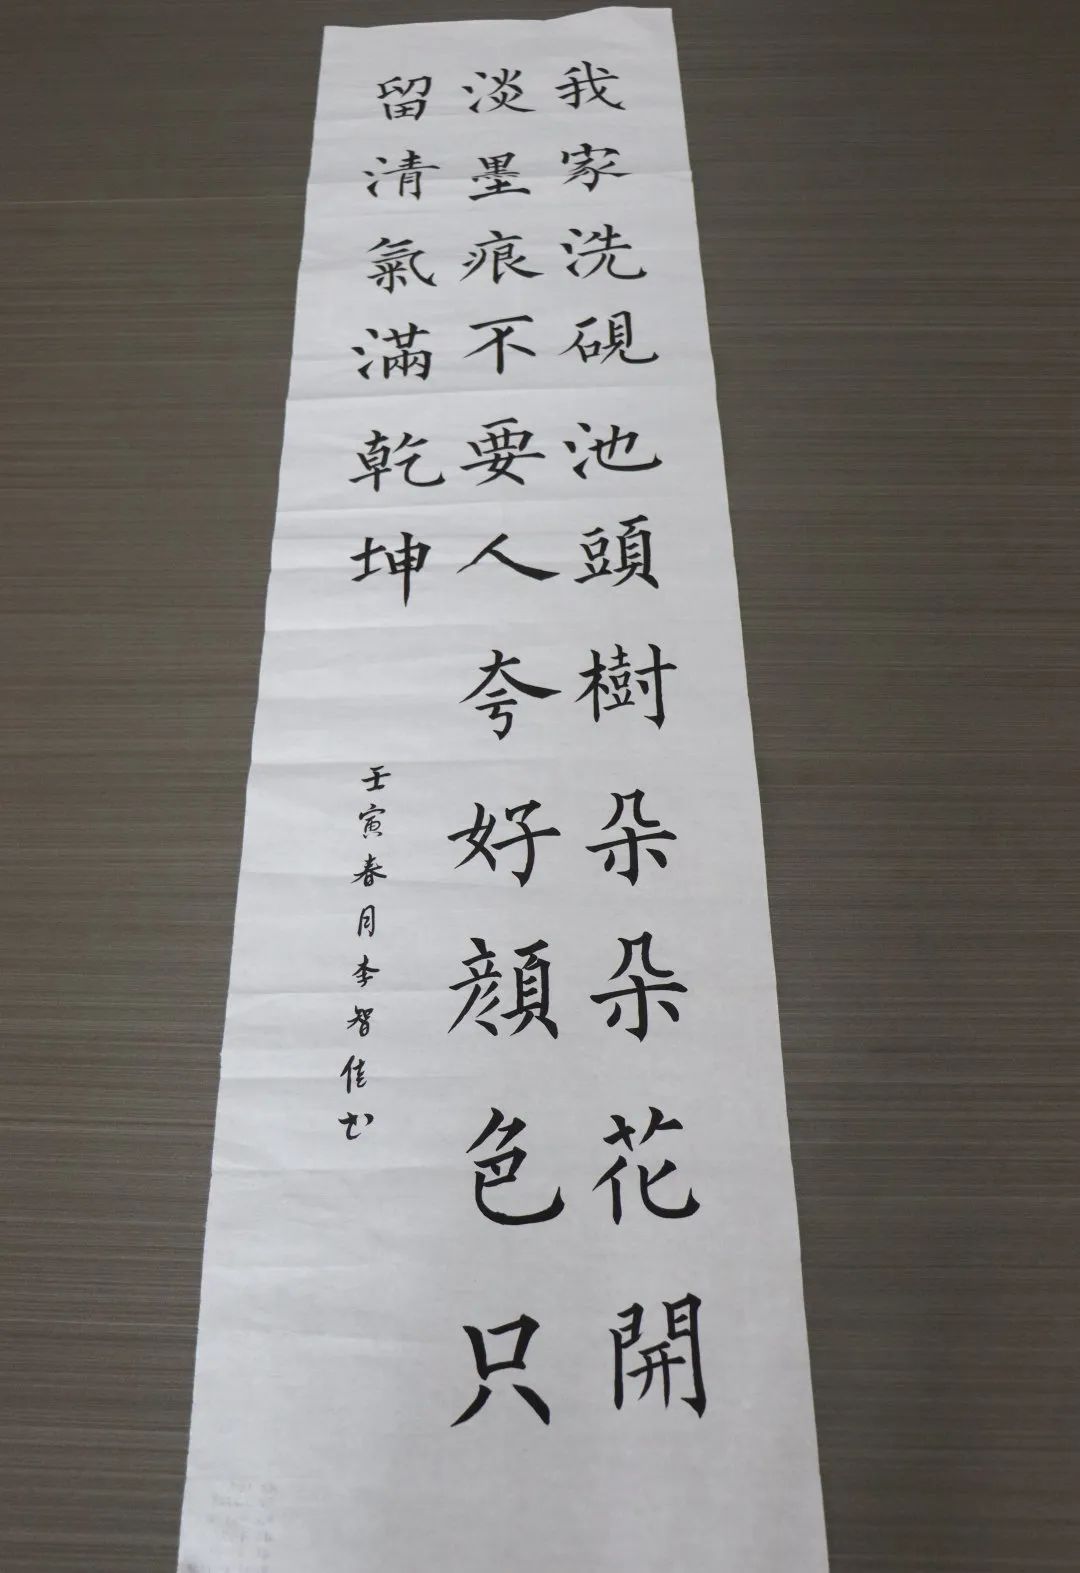 我家洗硯池頭樹朵朵花開
淡墨痕不要人夸好顏色只
留清氣滿乾坤
壬寅春月李智佳书